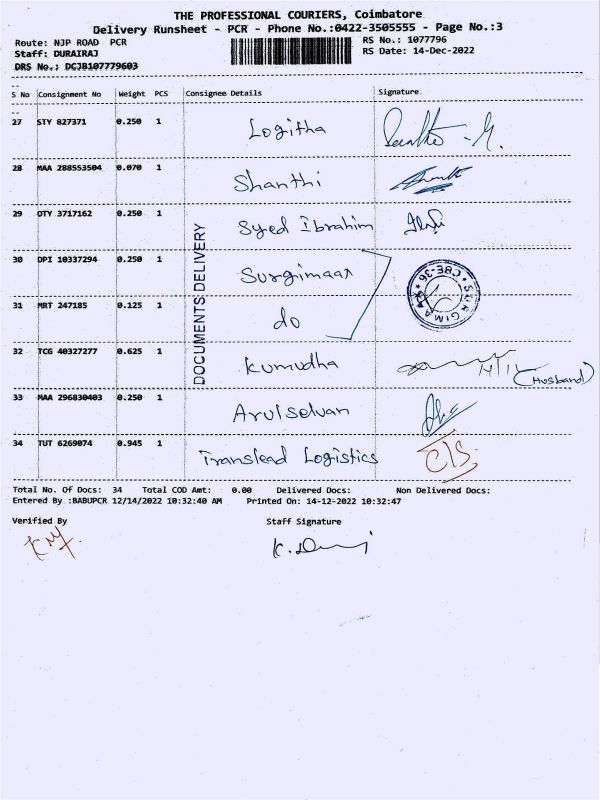 THE PROFESSIONAL COURIERS, Coimbatore
Delivery Runsheet - PCR - Phone No.:0422-3505555 - Page No.:3
Route: NJP ROAD PCR
RS No.: 1077796
Staff: DURAIRAJ
RS Date: 14-Dec-2022
DRS No.: DCJB107779603
S No Consignment No Weight PCS Consignee Details Signature
27 STY 827371 0.250 1 Logitha
28 MAA 288553504 0.070 1 Shanthi
29 OTY 3717162 0.250 1 Syed Ibrahim
30 DPI 10337294 0.250 1 Surgimaar
31 MRT 247185 0.125 1 do
32 TCG 40327277 0.625 1 Kumudha (Husband)
33 MAA 296830403 0.250 1 Arulselvan
34 TUT 6269074 0.945 1 Translead Logistics
DOCUMENTS DELIVERY
SURGIMAA CBE-36
Total No. Of Docs: 34 Total COD Amt: 0.00 Delivered Docs: Non Delivered Docs:
Entered By :BABUPCR 12/14/2022 10:32:40 AM Printed On: 14-12-2022 10:32:47
Verified By Staff Signature